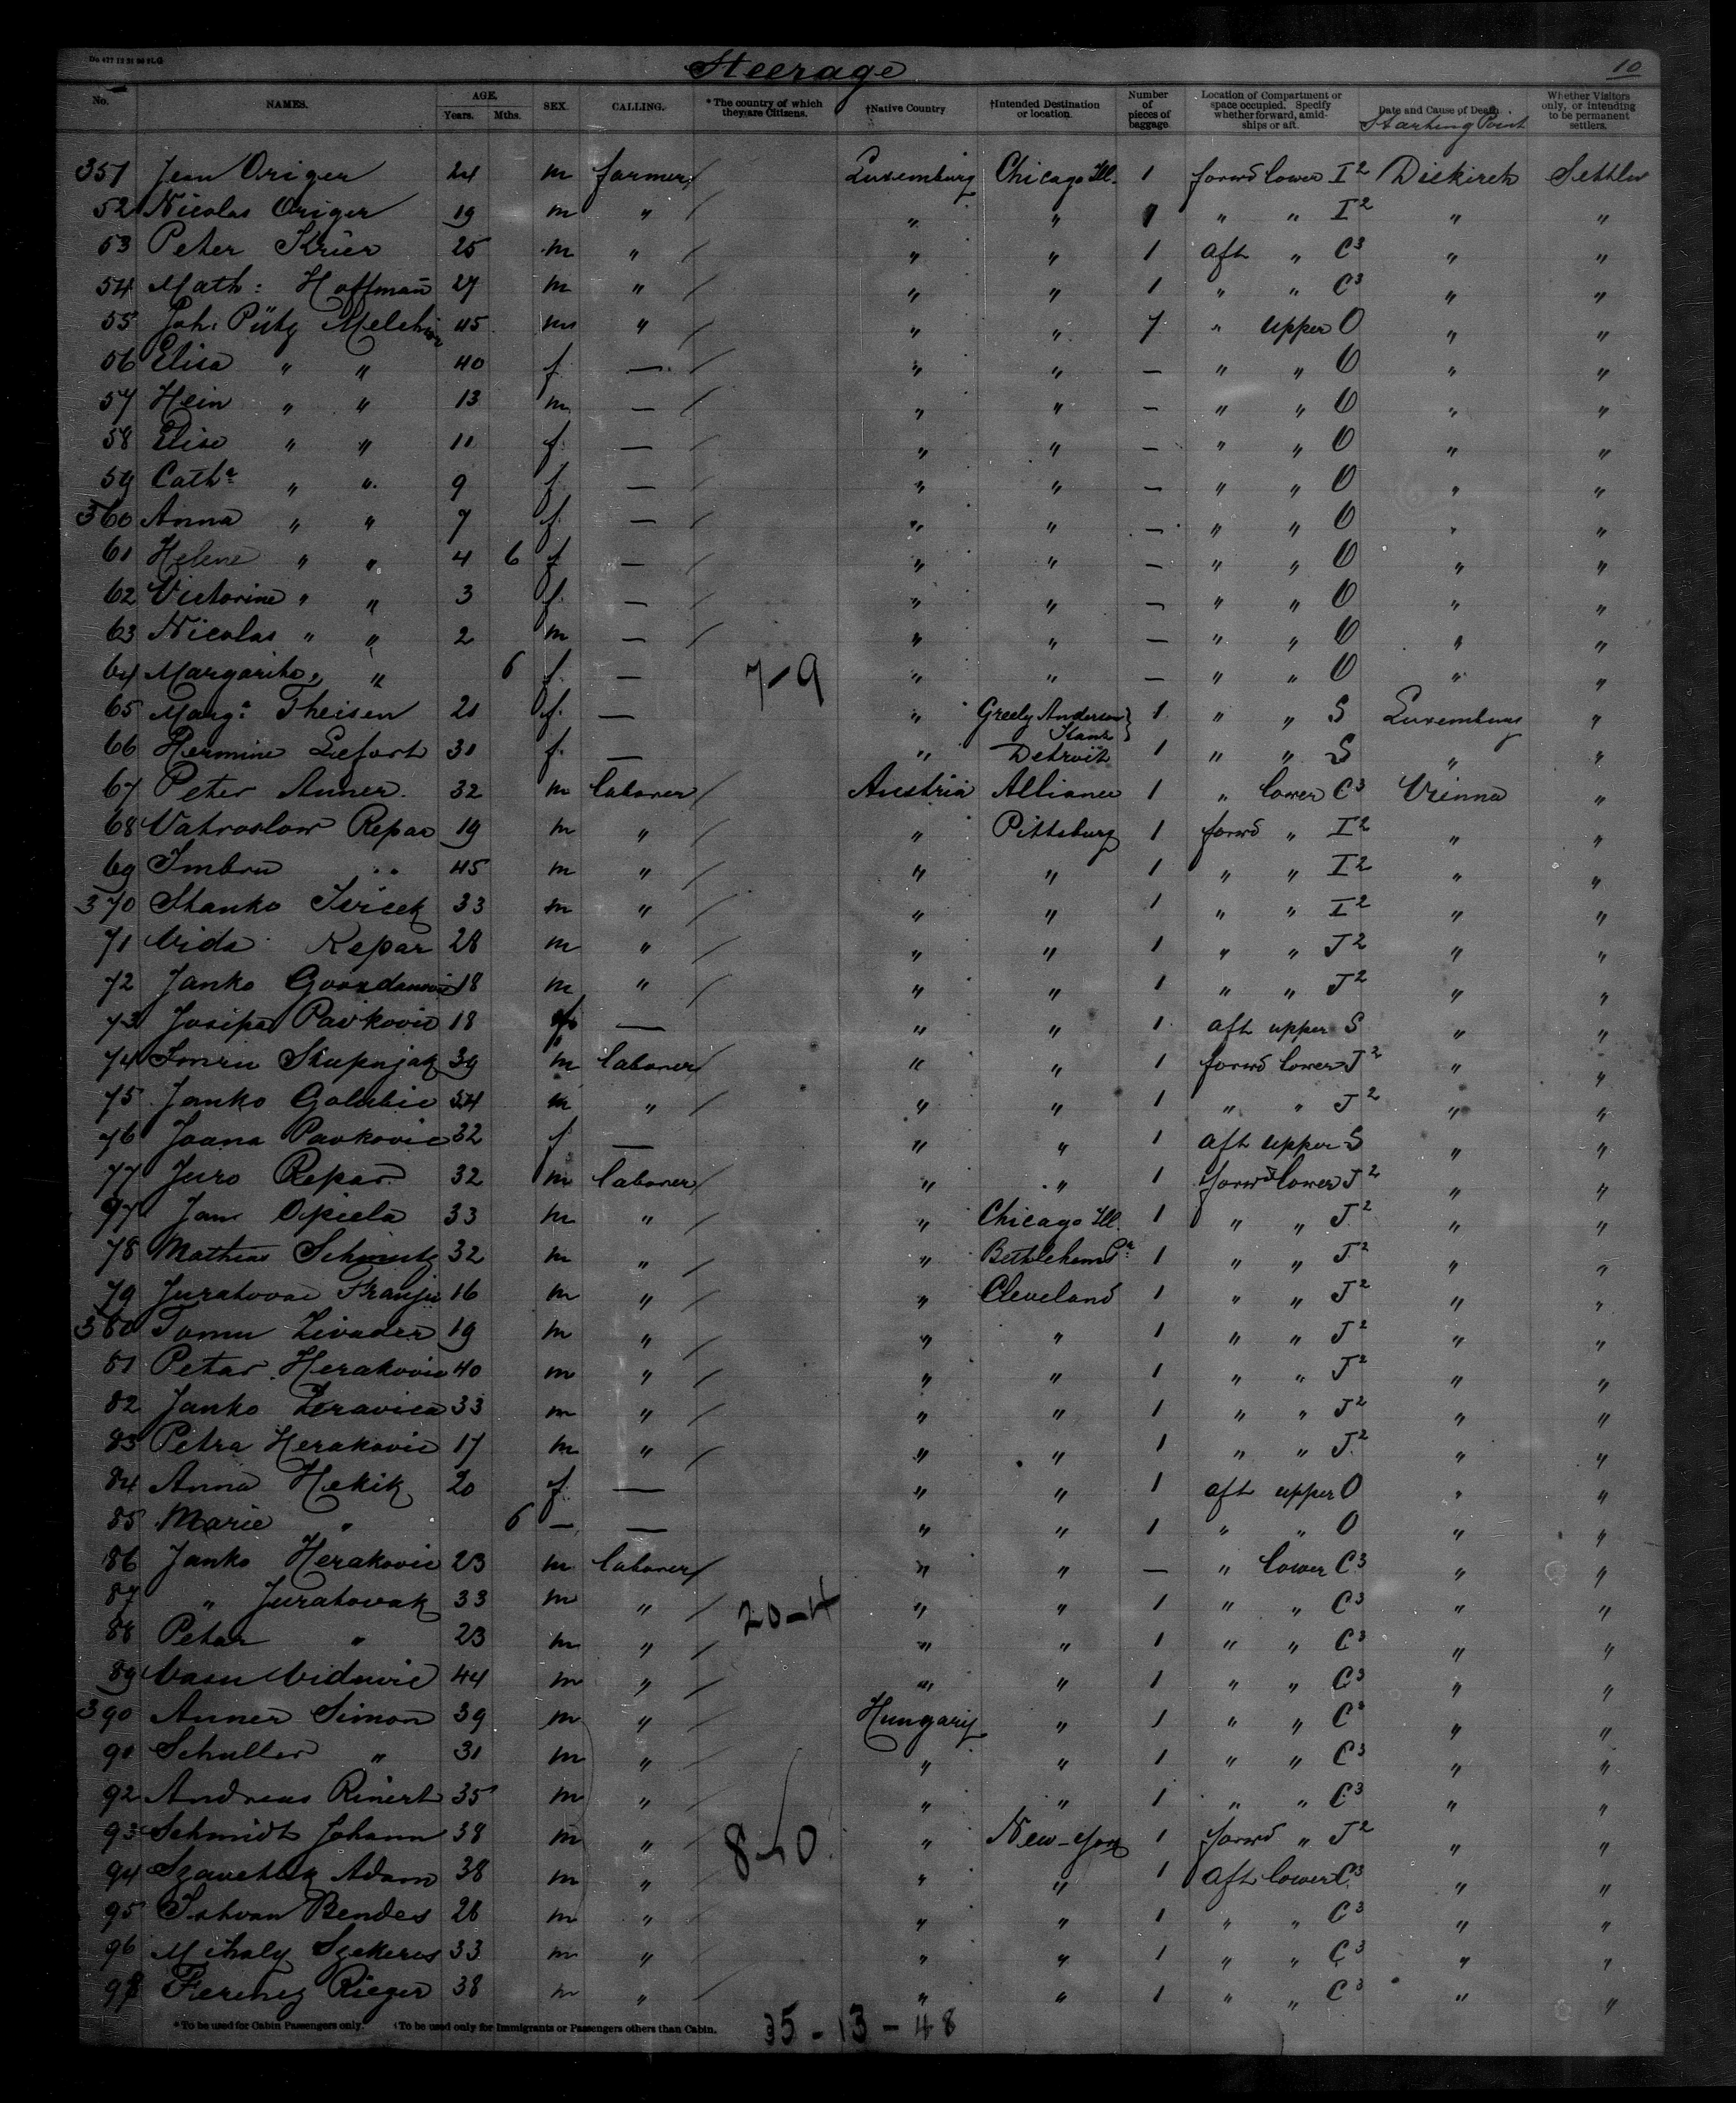 Steerage
10
No. NAMES. AGE. Years. Mths. SEX. CALLING. *The country of which they are Citizens. †Native Country †Intended Destination or location. Number of pieces of baggage Location of Compartment or space occupied. Specify whether forward, amidships or aft. Date and Cause of Death. Starting Point Whether Visitors only, or intending to be permanent settlers.
351 Jean Origer 24 m farmer / Luxemburg Chicago Ill. 1 forwd lower I2 Diekirch Settler
52 Nicolas Origer 19 m " / " " 1 " " I2 " "
53 Peter Krier 25 m " / " " 1 aft " C3 " "
54 Math: Hoffman 27 m " / " " 1 " " C3 " "
55 Joh. Pütz Melchior 45 m " / " " 7 " upper O " "
56 Elisa " " 40 f — / " " — " " O " "
57 Hein " " 13 m — / " " — " " O " "
58 Elise " " 11 f — / " " — " " O " "
59 Cathr " " 9 f — / " " — " " O " "
360 Anna " " 7 f — / " " — " " O " "
61 Helene " " 4 6 f — / " " — " " O " "
62 Victorine " " 3 f — / " " — " " O " "
63 Nicolas " " 2 m — / " " — " " O " "
64 Margarita " " 6 f — 7-9 " " — " " O " "
65 Marga Theisen 21 f — " Greely Anderson 1 " " S Luxemburg "
66 Hermine Lefort 31 f — " Detroit 1 " " S " "
67 Peter Anner 32 m laborer / Austria Alliance 1 " lower C3 Vienna "
68 Vatroslow Repar 19 m " / " Pittsburg 1 forwd " I2 " "
69 Imbru " 45 m " / " " 1 " " I2 " "
370 Stanko 33 m " / " " 1 " " I2 " "
71 Vida Repar 28 m " / " " 1 " " J2 " "
72 Janko 18 m " / " " 1 " " J2 " "
73 Josipa Pavkovic 18 f — " " 1 aft upper S " "
74 Skupnjak 39 m laborer / " " 1 forwd lower J2 " "
75 Janko Golubic m " / " " 1 " " J2 " "
76 Joana Pavkovic 32 f — " " 1 aft upper S " "
77 Juro Repar 32 m laborer / " " 1 forwd lower J2 " "
97 Jan Opiela 33 m " / " Chicago Ill. 1 " " J2 " "
78 Mathias Schmutz 32 m " / " Bethlehem Pa 1 " " J2 " "
79 Juratovac Franju 16 m " / " Cleveland 1 " " J2 " "
380 Tomu Livader 19 m " / " " 1 " " J2 " "
81 Petar Herakovic 40 m " / " " 1 " " J2 " "
82 Janko Zeravica 33 m " / " " 1 " " J2 " "
83 Petra Herakovic 17 m " / " " 1 " " J2 " "
84 Anna Hekik 20 f — " " 1 aft upper O " "
85 Marie " 6 — — " " 1 " " O " "
86 Janko Herakovic 23 m laborer / " " — " lower C3 " "
87 " Juratovak 33 m " / 20-4 " " 1 " " C3 " "
88 Petar " 23 m " / " " 1 " " C3 " "
89 44 m " / " " 1 " " C3 " "
390 Anner Simon 39 m " / Hungary " 1 " " C3 " "
91 Schuller " 31 m " / " " 1 " " C3 " "
92 Andreas Rinert 35 m " / " " 1 " " C3 " "
93 Schmidt Johann 38 m " / " New-York 1 forwd " J2 " "
94 Adam 38 m " / " " 1 aft lower C3 " "
95 Istvan Bendes 26 m " / " " 1 " " C3 " "
96 Mihaly Szekeres 33 m " / " " 1 " " C3 " "
98 Ferencz Rieger 38 m " / " " 1 " " C3 " "
*To be used for Cabin Passengers only. †To be used only for Immigrants or Passengers others than Cabin.
35 - 13 - 48